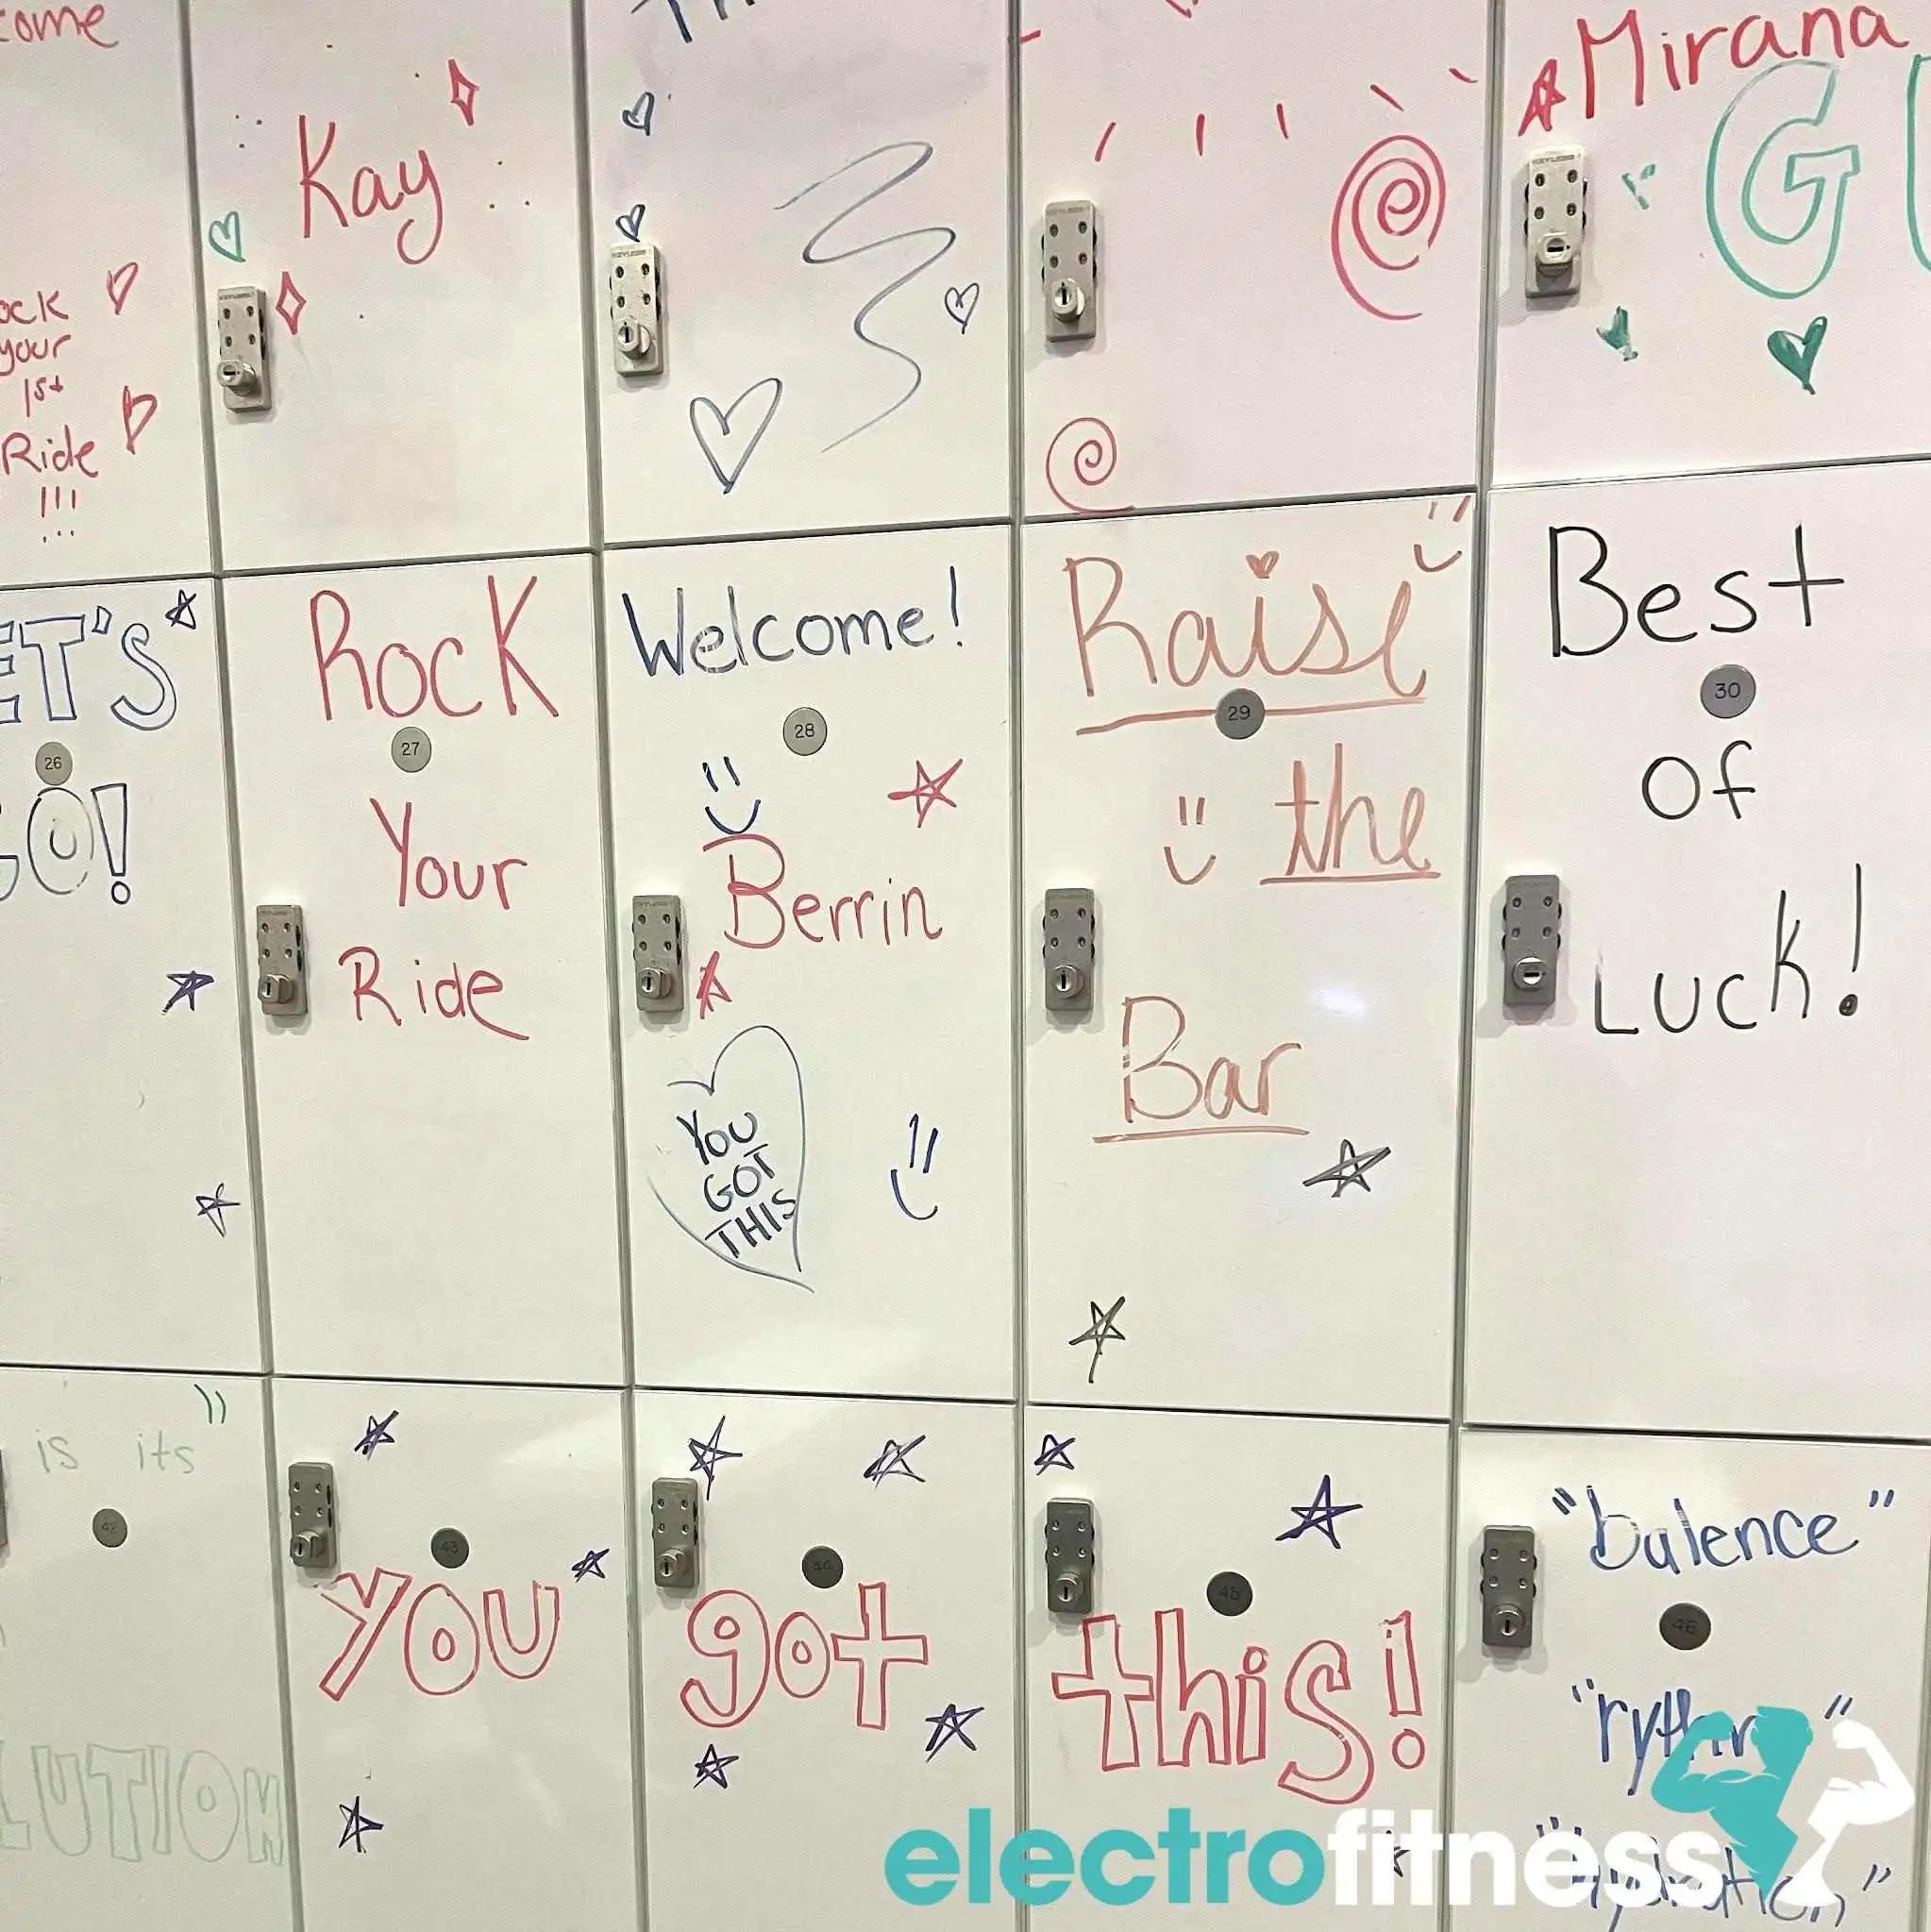 Kay
Mirana
G
your
1st
Ride
!!!
LET'S
26
GO!
Rock
27
Your
Ride
Welcome!
28
Berrin
YOU
GOT
THIS
Raise
29
the
Bar
Best
30
of
Luck!
is its
42
43
YOU
44
got
45
this!
"balence"
46
"rythm"
"hydration"
electrofitness